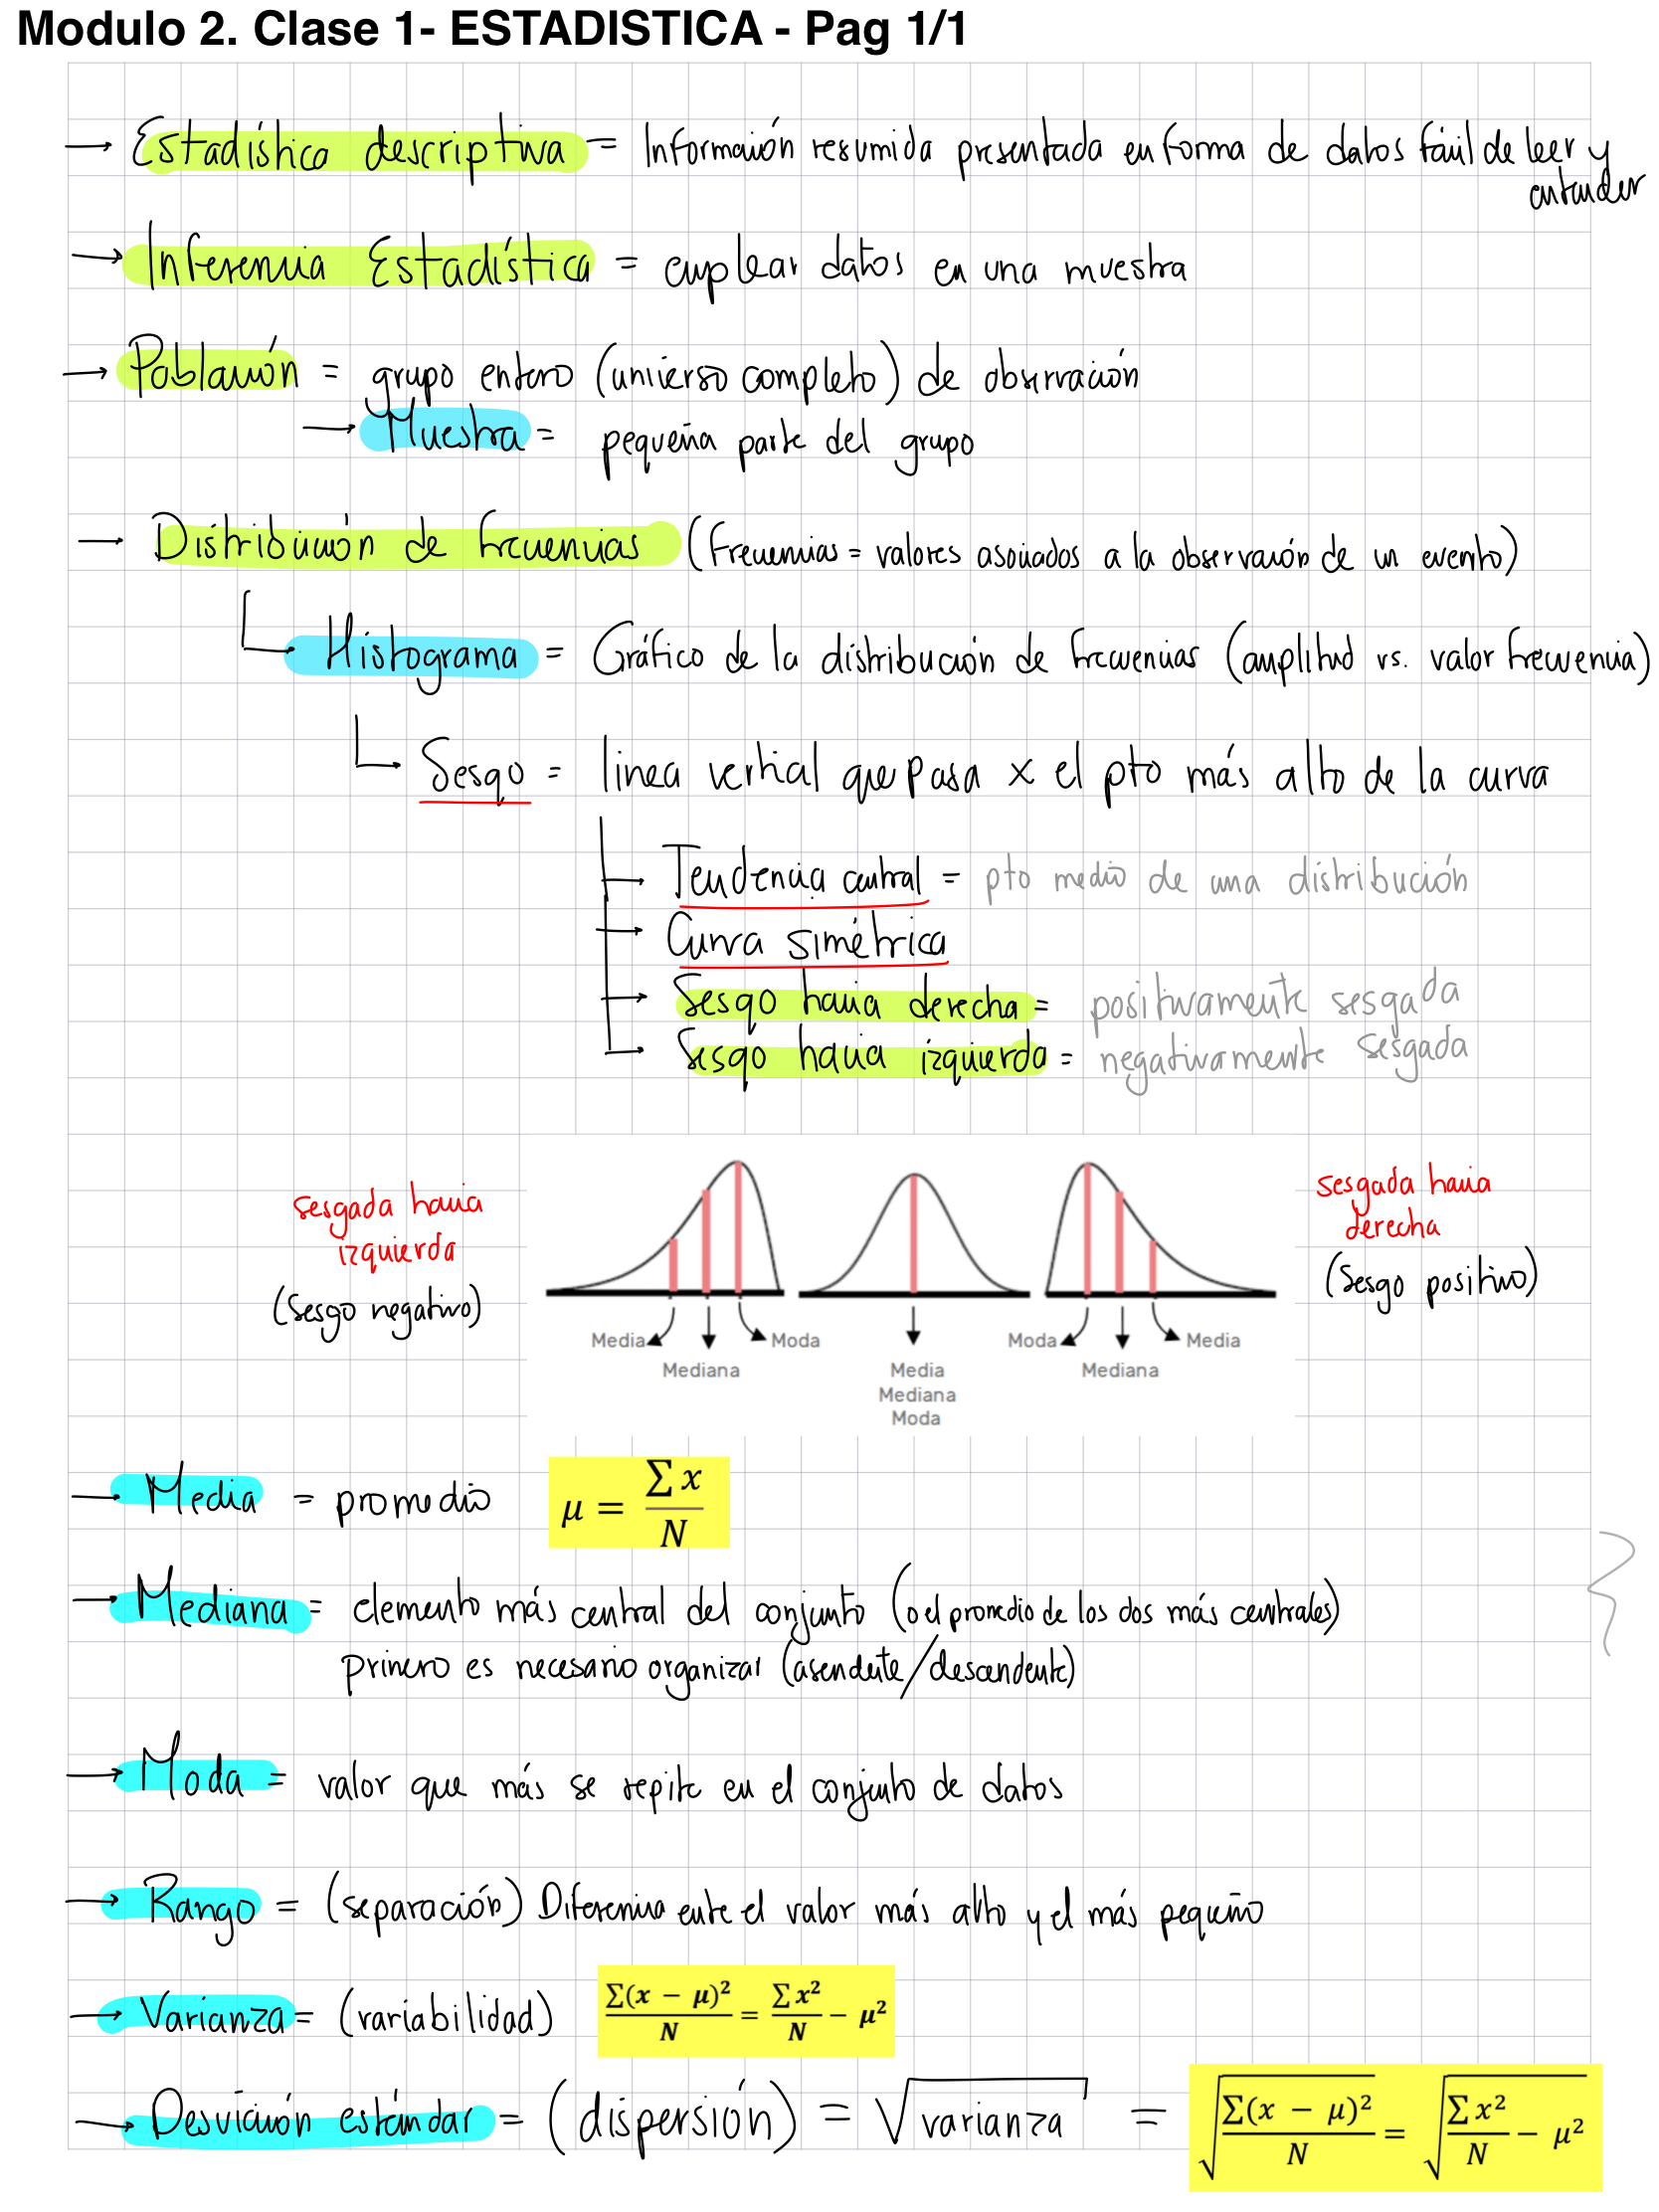 Modulo 2. Clase 1- ESTADISTICA - Pag 1/1
→ Estadística descriptiva = Información resumida presentada en forma de datos fácil de leer y
entender
→ Inferencia Estadística = emplear datos en una muestra
→ Población = grupo entero (universo completo) de observación
→ Muestra = pequeña parte del grupo
— Distribución de frecuencias (Frecuencias = valores asociados a la observación de un evento)
Histograma = Gráfico de la distribución de frecuencias (amplitud vs. valor frecuencia)
Sesgo = linea vertical que pasa x el pto más alto de la curva
→ Tendencia central = pto medio de una distribución
→ Curva simétrica
→ Sesgo hacia derecha = positivamente sesgada
→ Sesgo hacia izquierda = negativamente sesgada
sesgada hacia
izquierda
(Sesgo negativo)
sesgada hacia
derecha
(Sesgo positivo)
Media Moda Moda Media
Mediana Media Mediana
Mediana
Moda
→ Media = promedio μ = ∑x / N
→ Mediana = elemento más central del conjunto (o el promedio de los dos más centrales)
primero es necesario organizar (asendente/descendente)
→ Moda = valor que más se repite en el conjunto de datos
→ Rango = (separación) Diferencia ente el valor más alto y el más pequeño
→ Varianza = (variabilidad) ∑(x − μ)² / N = ∑x² / N − μ²
→ Desviación estándar = (dispersión) = √varianza = √(∑(x − μ)² / N) = √(∑x² / N − μ²)